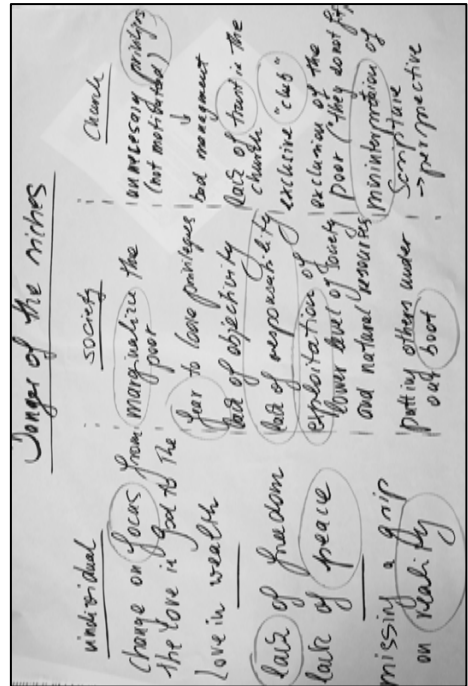 Danger of the riches
individual
change on focus from
the love in god to the
love in wealth
lack of freedom
lack of peace
missing a grip
on reality
society
marginalize the
poor
fear to loose privileges
lack of objectivity
lack of responsability
exploitation of
lower level of society
and natural resources
putting others under
out boot
Church
unnecesary privileges
(not motivated)
bad managment
lack of trust in the
church
exclusive "club"
exclusion of the
poor ("they do not fit")
misinterpretation of
Scripture
→ perspective